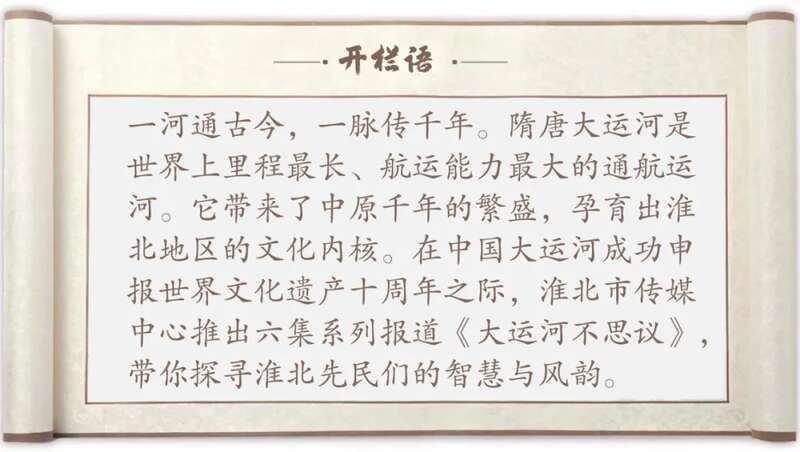 开栏语
一河通古今，一脉传千年。隋唐大运河是
世界上里程最长、航运能力最大的通航运
河。它带来了中原千年的繁盛，孕育出淮
北地区的文化内核。在中国大运河成功申
报世界文化遗产十周年之际，淮北市传媒
中心推出六集系列报道《大运河不思议》，
带你探寻淮北先民们的智慧与风韵。